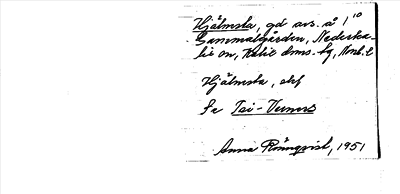 Hjälmsta, gd avs. å 1¹⁰
Gammelgården, Nederka-
lix sn, Kalix dms. fg, Norrb. l
Hjälmsta, skf
Se Tsi-Verners
Anna Rönnqvist, 1951